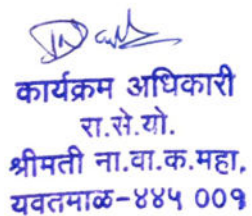 कार्यक्रम अधिकारी
रा.से.यो.
श्रीमती ना.वा.क.महा,
यवतमाळ-४४५ ००१